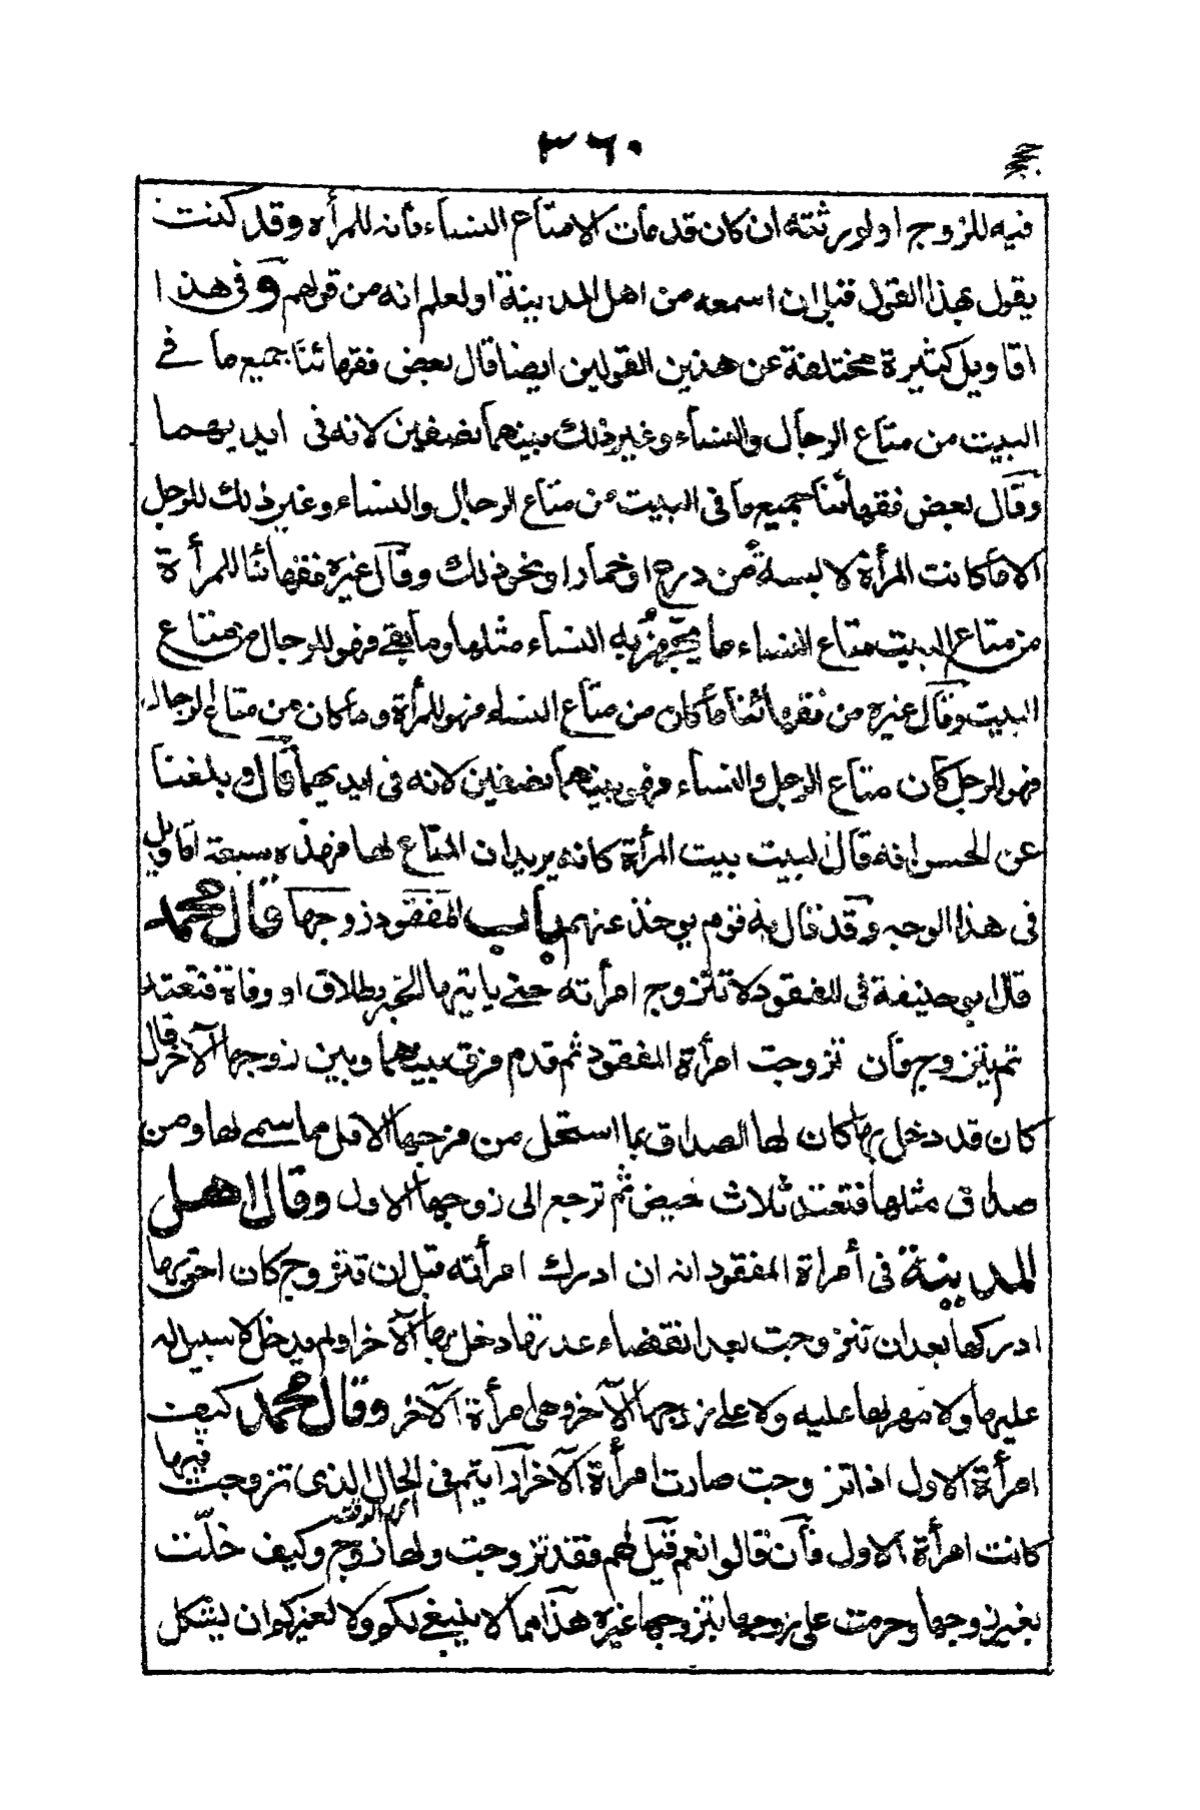 ٣٦٠
فيه للزوج او لورثته ان كان قد مات الا متاع النساء فانه للمرأة وقد كنت
يقول بهذا القول قبل ان اسمعه من اهل المدينة او لعلم انه من قولهم وفي هذا
اقاويل كثيرة مختلفة عن هذين القولين ايضا قال بعض فقهائنا جميع ما في
البيت من متاع الرجال والنساء وغير ذلك بينهما نصفين لانه في ايديهما
وقال بعض فقهائنا جميع ما في البيت من متاع الرجال والنساء وغير ذلك للرجل
الا ما كانت المرأة لابسة من درع او خمار او نحو ذلك وقال غيره فقهائنا للمرأة
من متاع البيت متاع النساء ما يجهز به النساء مثلها وما بقي فهو للرجال من متاع
البيت وقال غيره من فقهائنا ما كان من متاع النساء فهو للمرأة وما كان من متاع الرجال
فهو للرجل كان متاع الرجل والنساء فهو بينهما نصفين لانه في ايديهما قال وبلغنا
عن الحسن انه قال البيت بيت المرأة كانه يريد ان المتاع لها فهذه سبعة اقاويل
في هذا الوجه وقد قال به قوم يوخذ عنهم باب المفقود زوجها قال محمد
قال ابو حنيفة في المفقود لا تتزوج امرأته حتى ياتيها الخبر بطلاق او وفاة فتعتد
ثم يتزوج فان تزوجت امرأة المفقود ثم قدم فرق بينهما وبين زوجها الآخر قال
كان قد دخل بها كان لها الصداق بما استحل من فرجها الاقل مما سمى لها ومن
صداق مثلها فتعتد ثلاث حيض ثم ترجع الى زوجها الاول وقال اهل
المدينة في أمراة المفقود انه ان ادرك امرأته قبل ان تتزوج كان احق بها
ادركها بعد ان تزوجت بعد انقضاء عدتها دخل بها الآخر اولم يدخل لا سبيل له
عليها ولا مهر لها عليه ولا على زوجها الآخر وهي امرأة الآخر وقال محمد كيف
امرأة الاول اذا تزوجت صارت امرأة الآخر أرايتم في الحال الذى تزوجت فيها
كانت امرأة الاول فان قالوا نعم قيل لهم فقد تزوجت ولها زوج وكيف حلّت
بغير زوجها وحرمت على زوجها بتزوجها غيره هذا مما لا ينبغي لكم ولا لغيركم ان يشكل